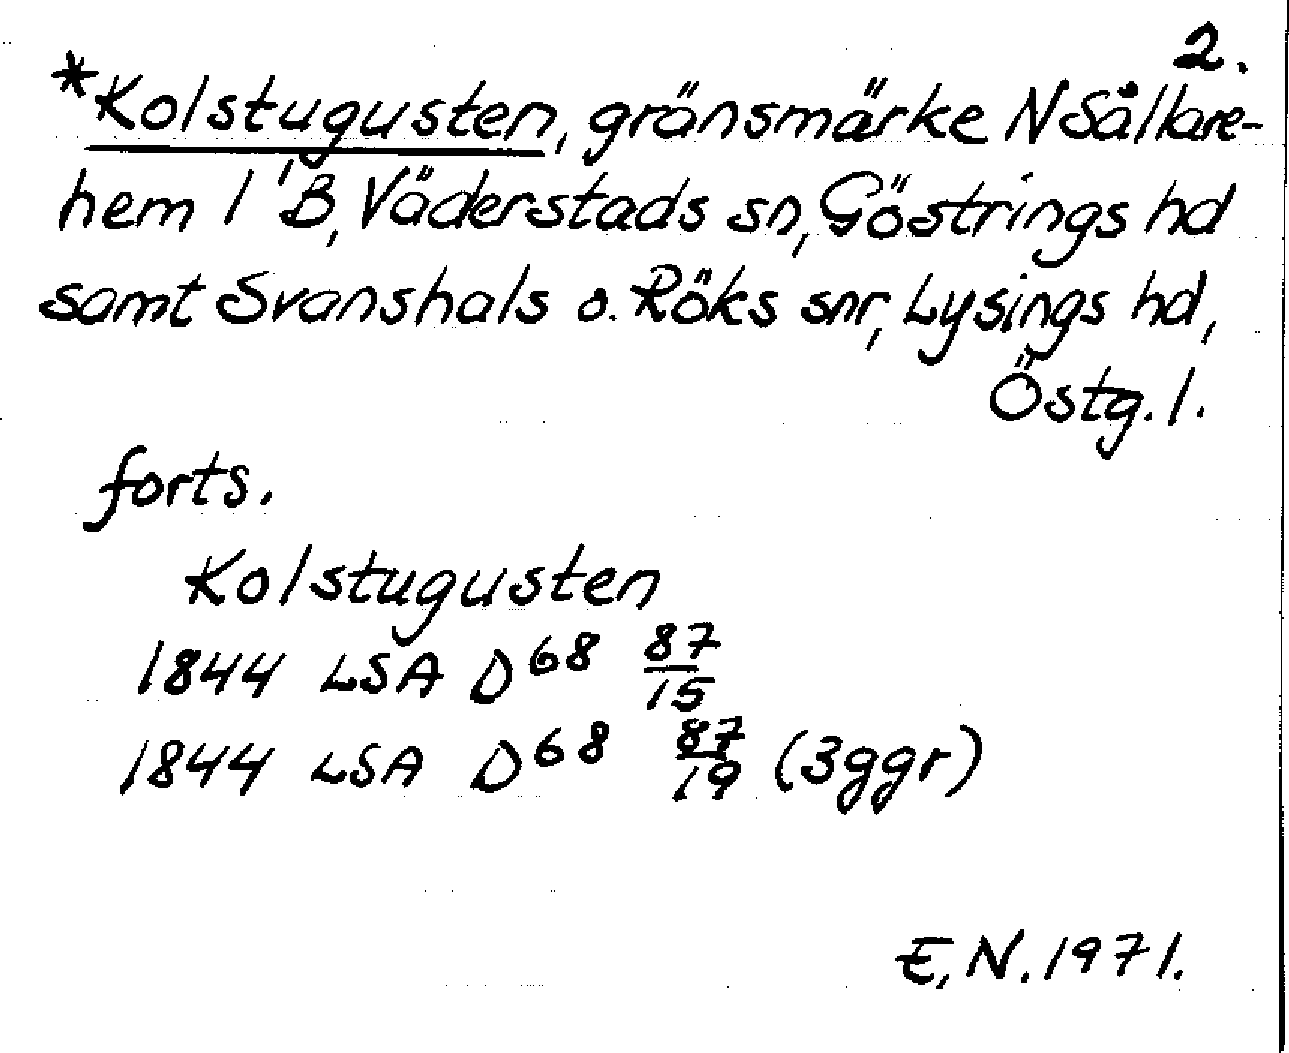 2.
*Kolstugusten, gränsmärke N Sållare-
hem 1 'B, Väderstads sn, Göstrings hd
samt Svanshals o. Röks snr, Lysings hd,
Östg. l.
forts.
Kolstugusten
1844 LSA D68 87/15
1844 LSA D68 87/19 (3ggr)
E.N. 1971.